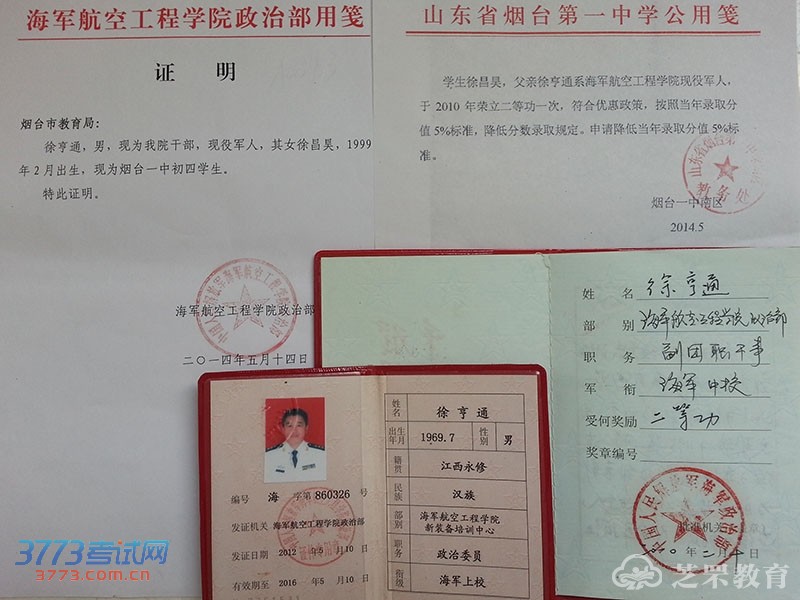 海军航空工程学院政治部用笺
证 明
烟台市教育局:
徐亨通,男,现为我院干部,现役军人,其女徐昌昊,1999
年2月出生,现为烟台一中初四学生。
特此证明。
海军航空工程学院政治部
二〇一四年五月十四日
山东省烟台第一中学公用笺
学生徐昌昊,父亲徐亨通系海军航空工程学院现役军人,
于2010年荣立二等功一次,符合优惠政策,按照当年录取分
值5%标准,降低分数录取规定。申请降低当年录取分值5%标
准。
教务处
烟台一中南区
2014.5
姓 名 徐亨通
部 别 海军航空工程学院政治部
职 务 副团职干事
军 衔 海军中校
受何奖励 二等功
奖章编号
批准机关
中国人民解放军海军政治部
编号 海 字第 860326 号
发证机关 海军航空工程学院政治部
发证日期 2012 年 5 月 10 日
有效期至 2016 年 5 月 10 日
姓名 徐亨通
出生年月 1969.7 性别 男
籍贯 江西永修
民族 汉族
部别 海军航空工程学院
新装备培训中心
职务 政治委员
衔级 海军上校
3773考试网
3773.com.cn
艺罘教育